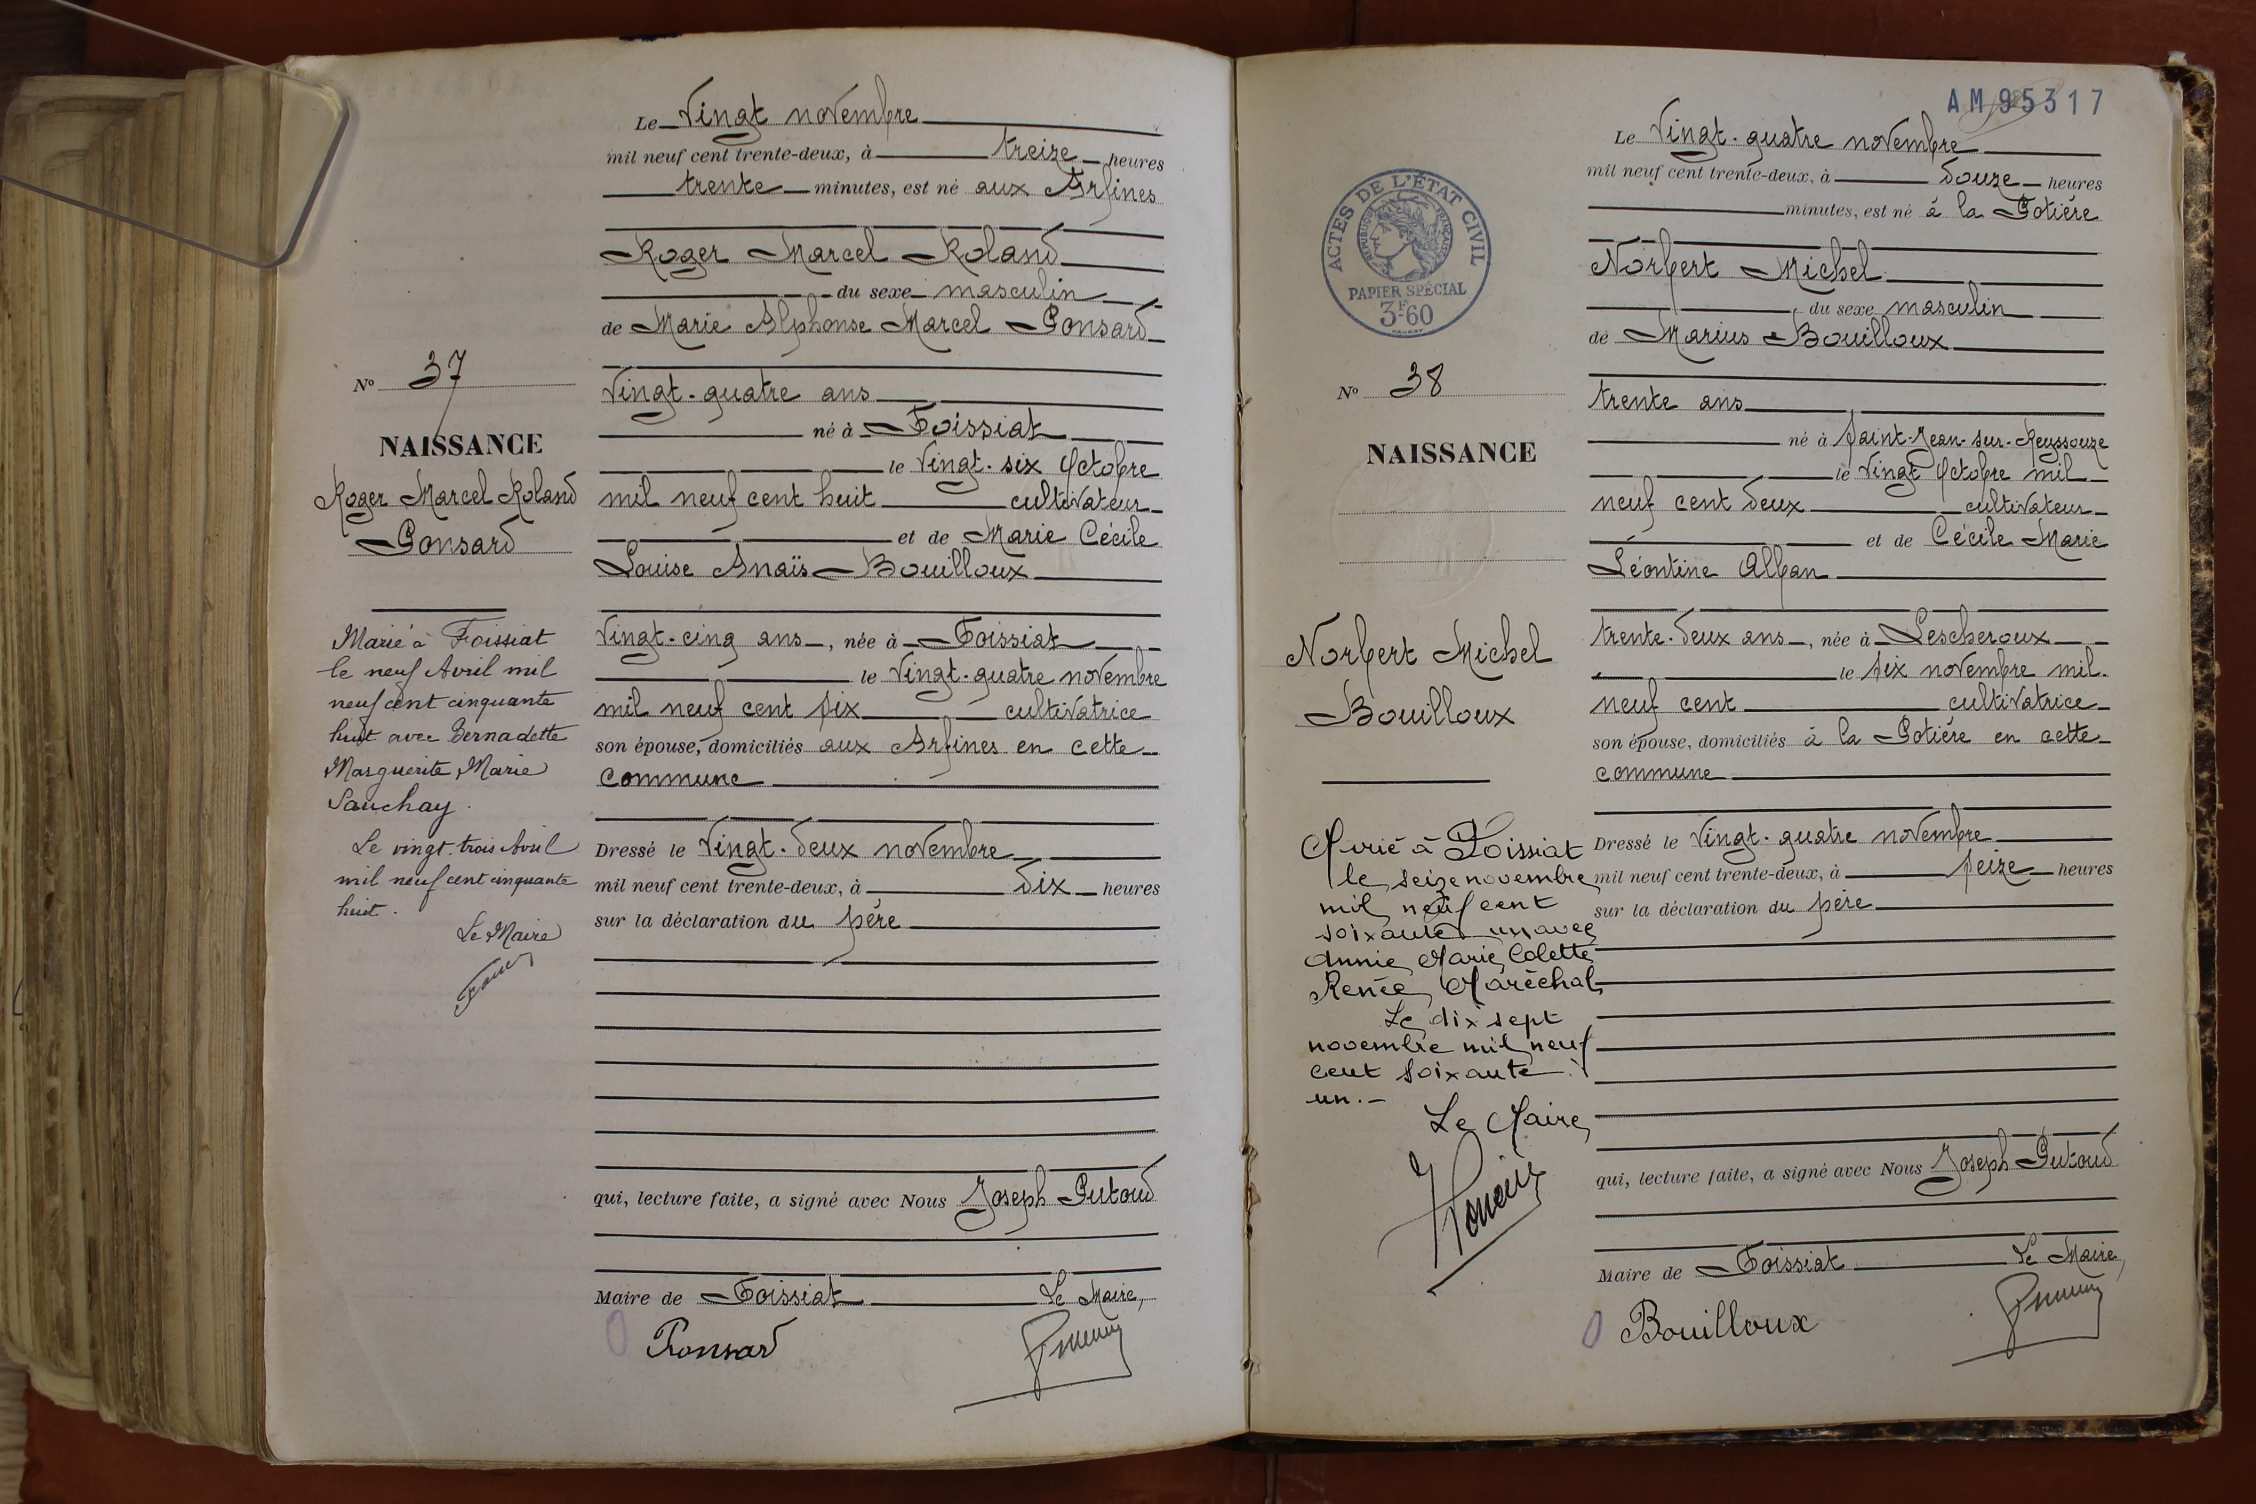 Le Vingt novembre
mil neuf cent trente-deux, à treize heures
trente minutes, est né aux Arfines
Roger Marcel Roland
du sexe masculin
de Marie Alphonse Marcel Ponsard
Vingt-quatre ans
né à Foissiat
le Vingt-six Octobre
mil neuf cent huit cultivateur
et de Marie Cécile
Louise Anaïs Bouilloux
Vingt-cinq ans, née à Foissiat
le Vingt-quatre novembre
mil neuf cent six cultivatrice
son épouse, domiciliés aux Arfines en cette
commune
Dressé le Vingt-deux novembre
mil neuf cent trente-deux, à dix heures
sur la déclaration du père
qui, lecture faite, a signé avec Nous Joseph Putoud
Maire de Foissiat Le Maire,
Ponsard
No 37
NAISSANCE
Roger Marcel Roland
Ponsard
Marié à Foissiat
le neuf Avril mil
neuf cent cinquante
huit avec Bernadette
Marguerite Marie
Sauchay.
Le vingt-trois Avril
mil neuf cent cinquante
huit.
Le Maire
AM 95317
Le Vingt-quatre novembre
mil neuf cent trente-deux, à douze heures
minutes, est né à la Potière
Norbert Michel
du sexe masculin
de Marius Bouilloux
trente ans
né à Saint-Jean-sur-Reyssouze
le Vingt Octobre mil
neuf cent deux cultivateur
et de Cécile Marie
Léontine Alban
trente-deux ans, née à Lescheroux
le six novembre mil
neuf cent cultivatrice
son épouse, domiciliés à la Potière en cette
commune
Dressé le Vingt-quatre novembre
mil neuf cent trente-deux, à seize heures
sur la déclaration du père
qui, lecture faite, a signé avec Nous Joseph Putoud
Maire de Foissiat Le Maire,
Bouilloux
ACTES DE L'ÉTAT CIVIL
RÉPUBLIQUE FRANÇAISE
PAPIER SPÉCIAL
3F60
No 38
NAISSANCE
Norbert Michel
Bouilloux
Marié à Foissiat
le seize novembre
mil neuf cent
soixante un avec
Annie Marie Colette
Renée Maréchal
Le dix sept
novembre mil neuf
cent soixante
un.-
Le Maire